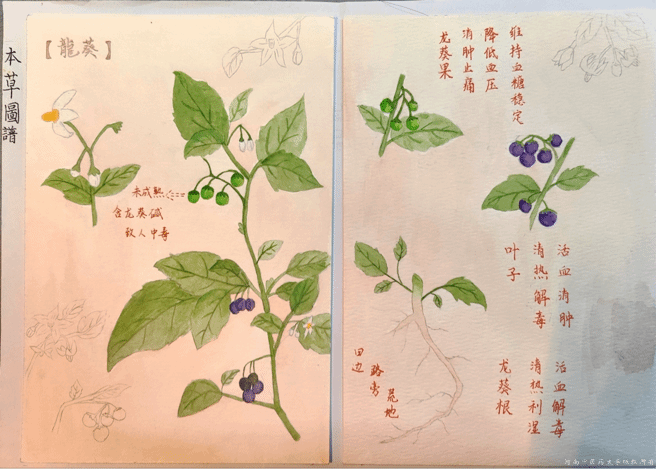 本草圖譜
【龍葵】
未成熟
含龙葵碱
致人中毒
维持血糖稳定
降低血压
消肿止痛
龙葵果
活血消肿
清热解毒
叶子
田边
路旁
荒地
活血解毒
清热利湿
龙葵根